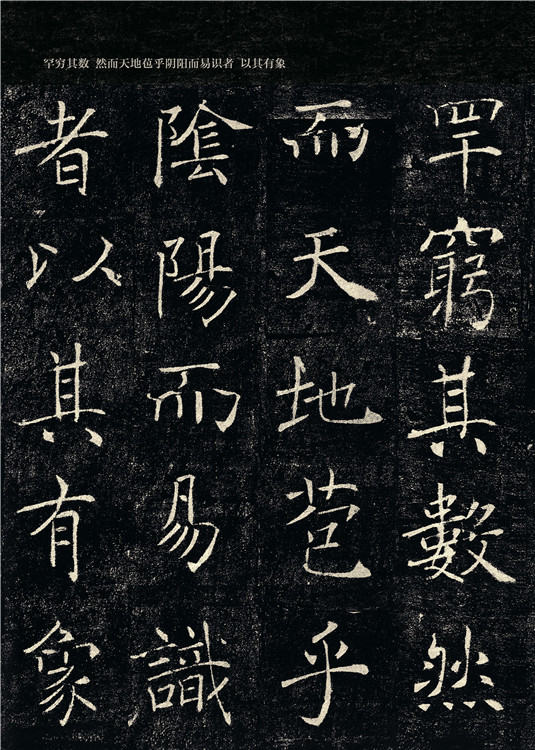 罕穷其数 然而天地苞乎阴阳而易识者 以其有象
罕窮其數然
而天地苞乎
陰陽而易識
者以其有象